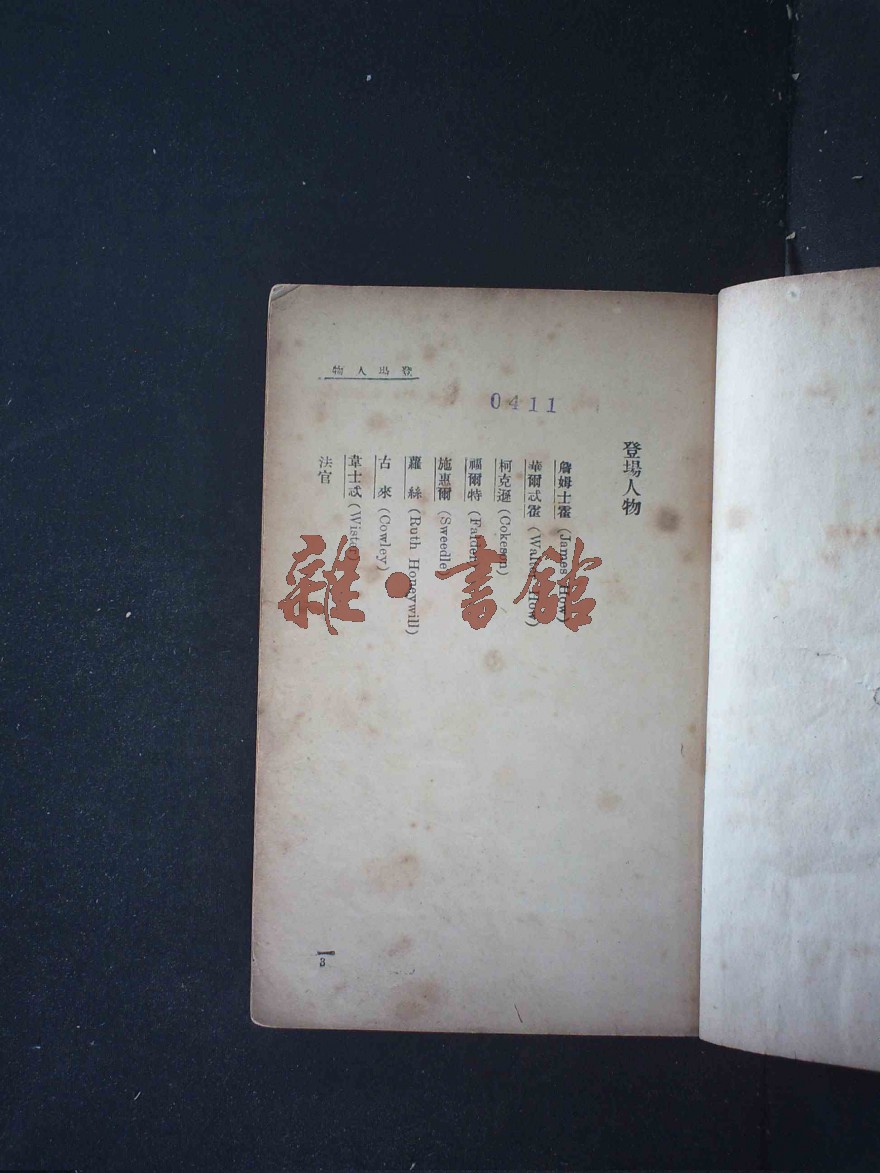 登場人物
0411
登場人物
詹姆士霍 (James How)
華爾忒霍 (Walter How)
柯克遜 (Cokeson)
福爾特 (Falder)
施惠爾 (Sweedle)
蘿絲 (Ruth Honeywill)
古來 (Cowley)
韋士忒 (Wister)
法官
雜·書館
3